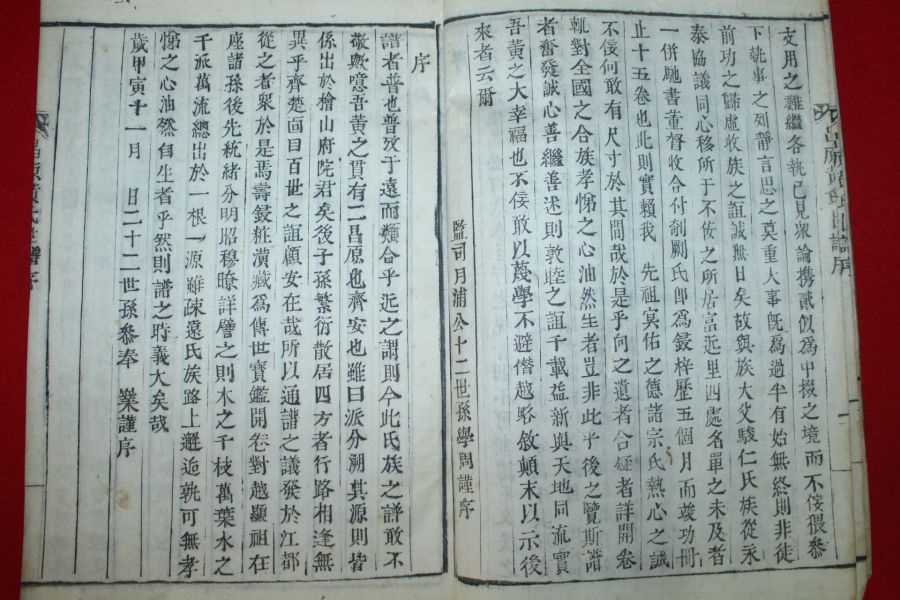 支用之難繼各執己見衆論携貳似爲中掇之境而不佞猥參
下執事之列靜言思之莫重大事旣爲過半有始無終則非徒
前功之歸虛收族之誼誠無日矣故與族大父駿仁氏族從永
泰協議同心移所于不佞之所居富近里四處名單之未及者
一併馳書董督收合付剞劂氏郎爲鋟梓歷五個月而竣功冊
止十五卷也此則實賴我 先祖冥佑之德諸宗氏熱心之誠
不佞何敢有尺寸於其間哉於是乎向之遺者合疑者詳開卷
輒對全國之合族孝悌之心油然生者豈非此乎後之覽斯譜
者奮發誠心善繼善述則敦睦之誼千載益新與天地同流實
吾黃之大幸福也不佞敢以蔑學不避僭越略敘顚末以示後
來者云爾
監司月浦公十二世孫學周謹序
序
譜者普也普及于遠而類合乎近之謂則今此氏族之譜敢不
敬歟噫吾黃之貫有二昌原也齊安也雖曰派分溯其源則皆
係出於檜山府院君矣後子孫繁衍散居四方者行路相逢無
異乎齊楚面目百世之誼顧安在哉所以通譜之議發於江都
從之者衆於是焉壽鋟粧潢藏爲傳世寶鑑開卷對越顯祖在
座諸孫後先統緖分明昭穆瞭詳譬之則木之千枝萬葉水之
千派萬流總出於一根一源雖疎遠氏族路上邂逅孰可無孝
悌之心油然自生者乎然則譜之時義大矣哉
歲甲寅十一月 日二十二世孫參奉 業謹序